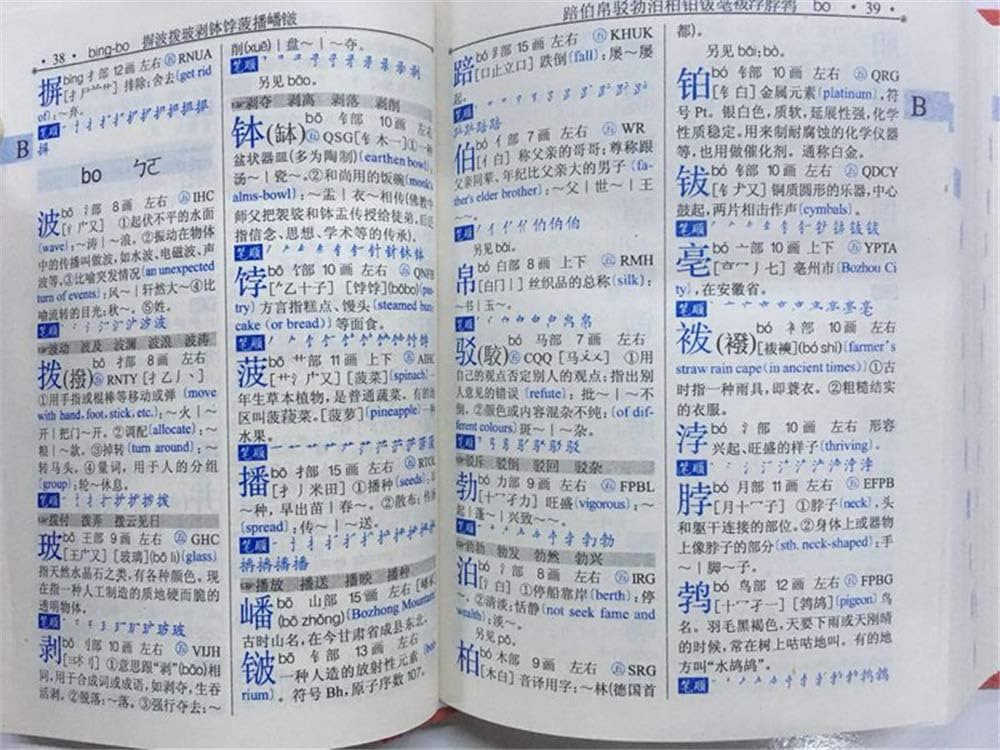 · 38 · bing-bo 摒波拨玻剥钵饽菠播嶓铍
摒 bìng 扌部 12画 左右 RNUA
排除;舍去(get rid
of):~弃。
笔顺
B
bo ㄅㄛ
波 bō 氵部 8画 左右 IHC
[氵广又] ①起伏不平的水面
(wave):~涛│~浪。②振动在物体
中的传播叫做波,如水波、电磁波、声
波等。③比喻突发情况(an unexpected
turn of events):风~│轩然大~④比
喻流转的目光:秋~。⑤姓。
笔顺
波动 波及 波澜 波浪 波涛
拨(撥) bō 扌部 8画 左右
RNTY
①用手指或棍棒等移动或弹(move
with hand, foot, stick, etc.):~火│~
开│把门~开。②调配(allocate):~
粮│~款。③掉转(turn around):~
转马头。④量词,用于人的分组
(group):轮~休息。
笔顺
拨付 拨弄 拨云见日
玻 bō 王部 9画 左右 GHC
[王广又] [玻璃](bō li)(glass)
指天然水晶石之类,有各种颜色。现
在指一种人工制造的质地硬而脆的
透明物体。
笔顺
剥 bō 刂部 10画 左右 VIJH
①意思跟“剥”(bāo)相
同,用于合成词或成语,如剥夺,生吞
活剥。②脱落:~落。③强行夺去:~
削(xuē)│盘~│~夺。
笔顺
另见 bāo。
剥夺 剥离 剥落 剥削
钵(缽) bō 钅部 10画 左右
QSG[钅木一]①一种
盆状器皿(多为陶制)(earthen bowl):
汤~│瓷~。②和尚用的饭碗(monk's
alms-bowl):~盂│衣~相传(佛教中
师父把袈裟和钵盂传授给徒弟,后泛
指信念、思想、学术等的传承)。
笔顺
饽 bō 饣部 10画 左右 QNFB
[饽饽](bōbo)(pas-
try)方言指糕点、馒头(steamed bun,
cake (or bread))等面食。
笔顺
菠 bō 艹部 11画 上下 AIHC
[艹氵广又] [菠菜](spinach)一
年生草本植物,是普通蔬菜。有的地
区叫菠薐菜。[菠萝](pineapple)一种
水果。
笔顺
播 bō 扌部 15画 左右 RTOL
[扌丿米田] ①播种(seeds):点
~种,早出苗│春~。②散布:传
(spread):传~│~送。
笔顺
播放 播送 播映 播种
嶓 bō 山部 15画 左右 [嶓冢]
(bō zhǒng)(Bozhong Mountain)
古时山名,在今甘肃省成县东北。
铍 bō 钅部 13画 左右
一种人造的放射性元素(boh-
rium)。符号Bh,原子序数107。
踣伯帛驳勃泊柏铂钹亳袯浡脖鹁 bó · 39 ·
踣 bó 𧾷部 15画 左右 KHUK
[口止立口] 跌倒(fall):屡~屡
起。
笔顺
伯 bó 亻部 7画 左右 WR
[亻白] 称父亲的哥哥;尊称跟
父亲同辈、年纪比父亲大的男子(fa-
ther's elder brother):~父│世~│王
~。
笔顺
另见 bǎi。
帛 bó 白部 8画 上下 RMH
[白冂丨] 丝织品的总称(silk):
~书│玉~。
笔顺
驳(駁) bó 马部 7画 左右
CQQ [马㐅㐅] ①用
自己的观点否定别人的观点;指出别
人意见的错误(refute):批~│~不
倒。②颜色或内容混杂不纯:(of dif-
ferent colours)斑~│~杂。
笔顺
驳斥 驳倒 驳回 驳杂
勃 bó 力部 9画 左右 FPBL
[十冖孑力] 旺盛(vigorous):~
起│蓬~│兴致~~。
笔顺
勃勃 勃发 勃然 勃兴
泊 bó 氵部 8画 左右 IRG
[氵白] ①停船靠岸(berth):停
~。②清淡;恬静(not seek fame and
wealth):淡~。
另见 pō。
柏 bó 木部 9画 左右 SRG
[木白] 音译用字:~林(德国首
都)。
另见 bǎi;bò。
铂 bó 钅部 10画 左右 QRG
[钅白]金属元素(platinum),符
号Pt。银白色,质软,延展性强,化学
性质稳定。用来制耐腐蚀的化学仪器
等,也用做催化剂。通称白金。
B
钹 bó 钅部 10画 左右 QDCY
[钅犮又] 铜质圆形的乐器,中心
鼓起,两片相击作声(cymbals)。
笔顺
亳 bó 亠部 10画 上下 YPTA
亳州市(Bozhou Ci
ty),在安徽省。
笔顺
袯(襏) bó 衤部 10画 左右
[袯襫](bó shì)(farmer's
straw rain cape (in ancient times))①古
时指一种雨具,即蓑衣。②粗糙结实
的衣服。
浡 bó 氵部 10画 左右 形容
兴起、旺盛的样子(thriving)。
笔顺
脖 bó 月部 11画 左右 EFPB
[月十冖孑] ①脖子(neck),头
和躯干连接的部位。②身体上或器物
上像脖子的部分(sth. neck-shaped):手
~│脚~子。
鹁 bó 鸟部 12画 左右 FPBG
[鹁鸪](pigeon)鸟
名。羽毛黑褐色,天要下雨或天刚晴
的时候,常在树上咕咕地叫。有的地
方叫“水鸪鸪”。
笔顺